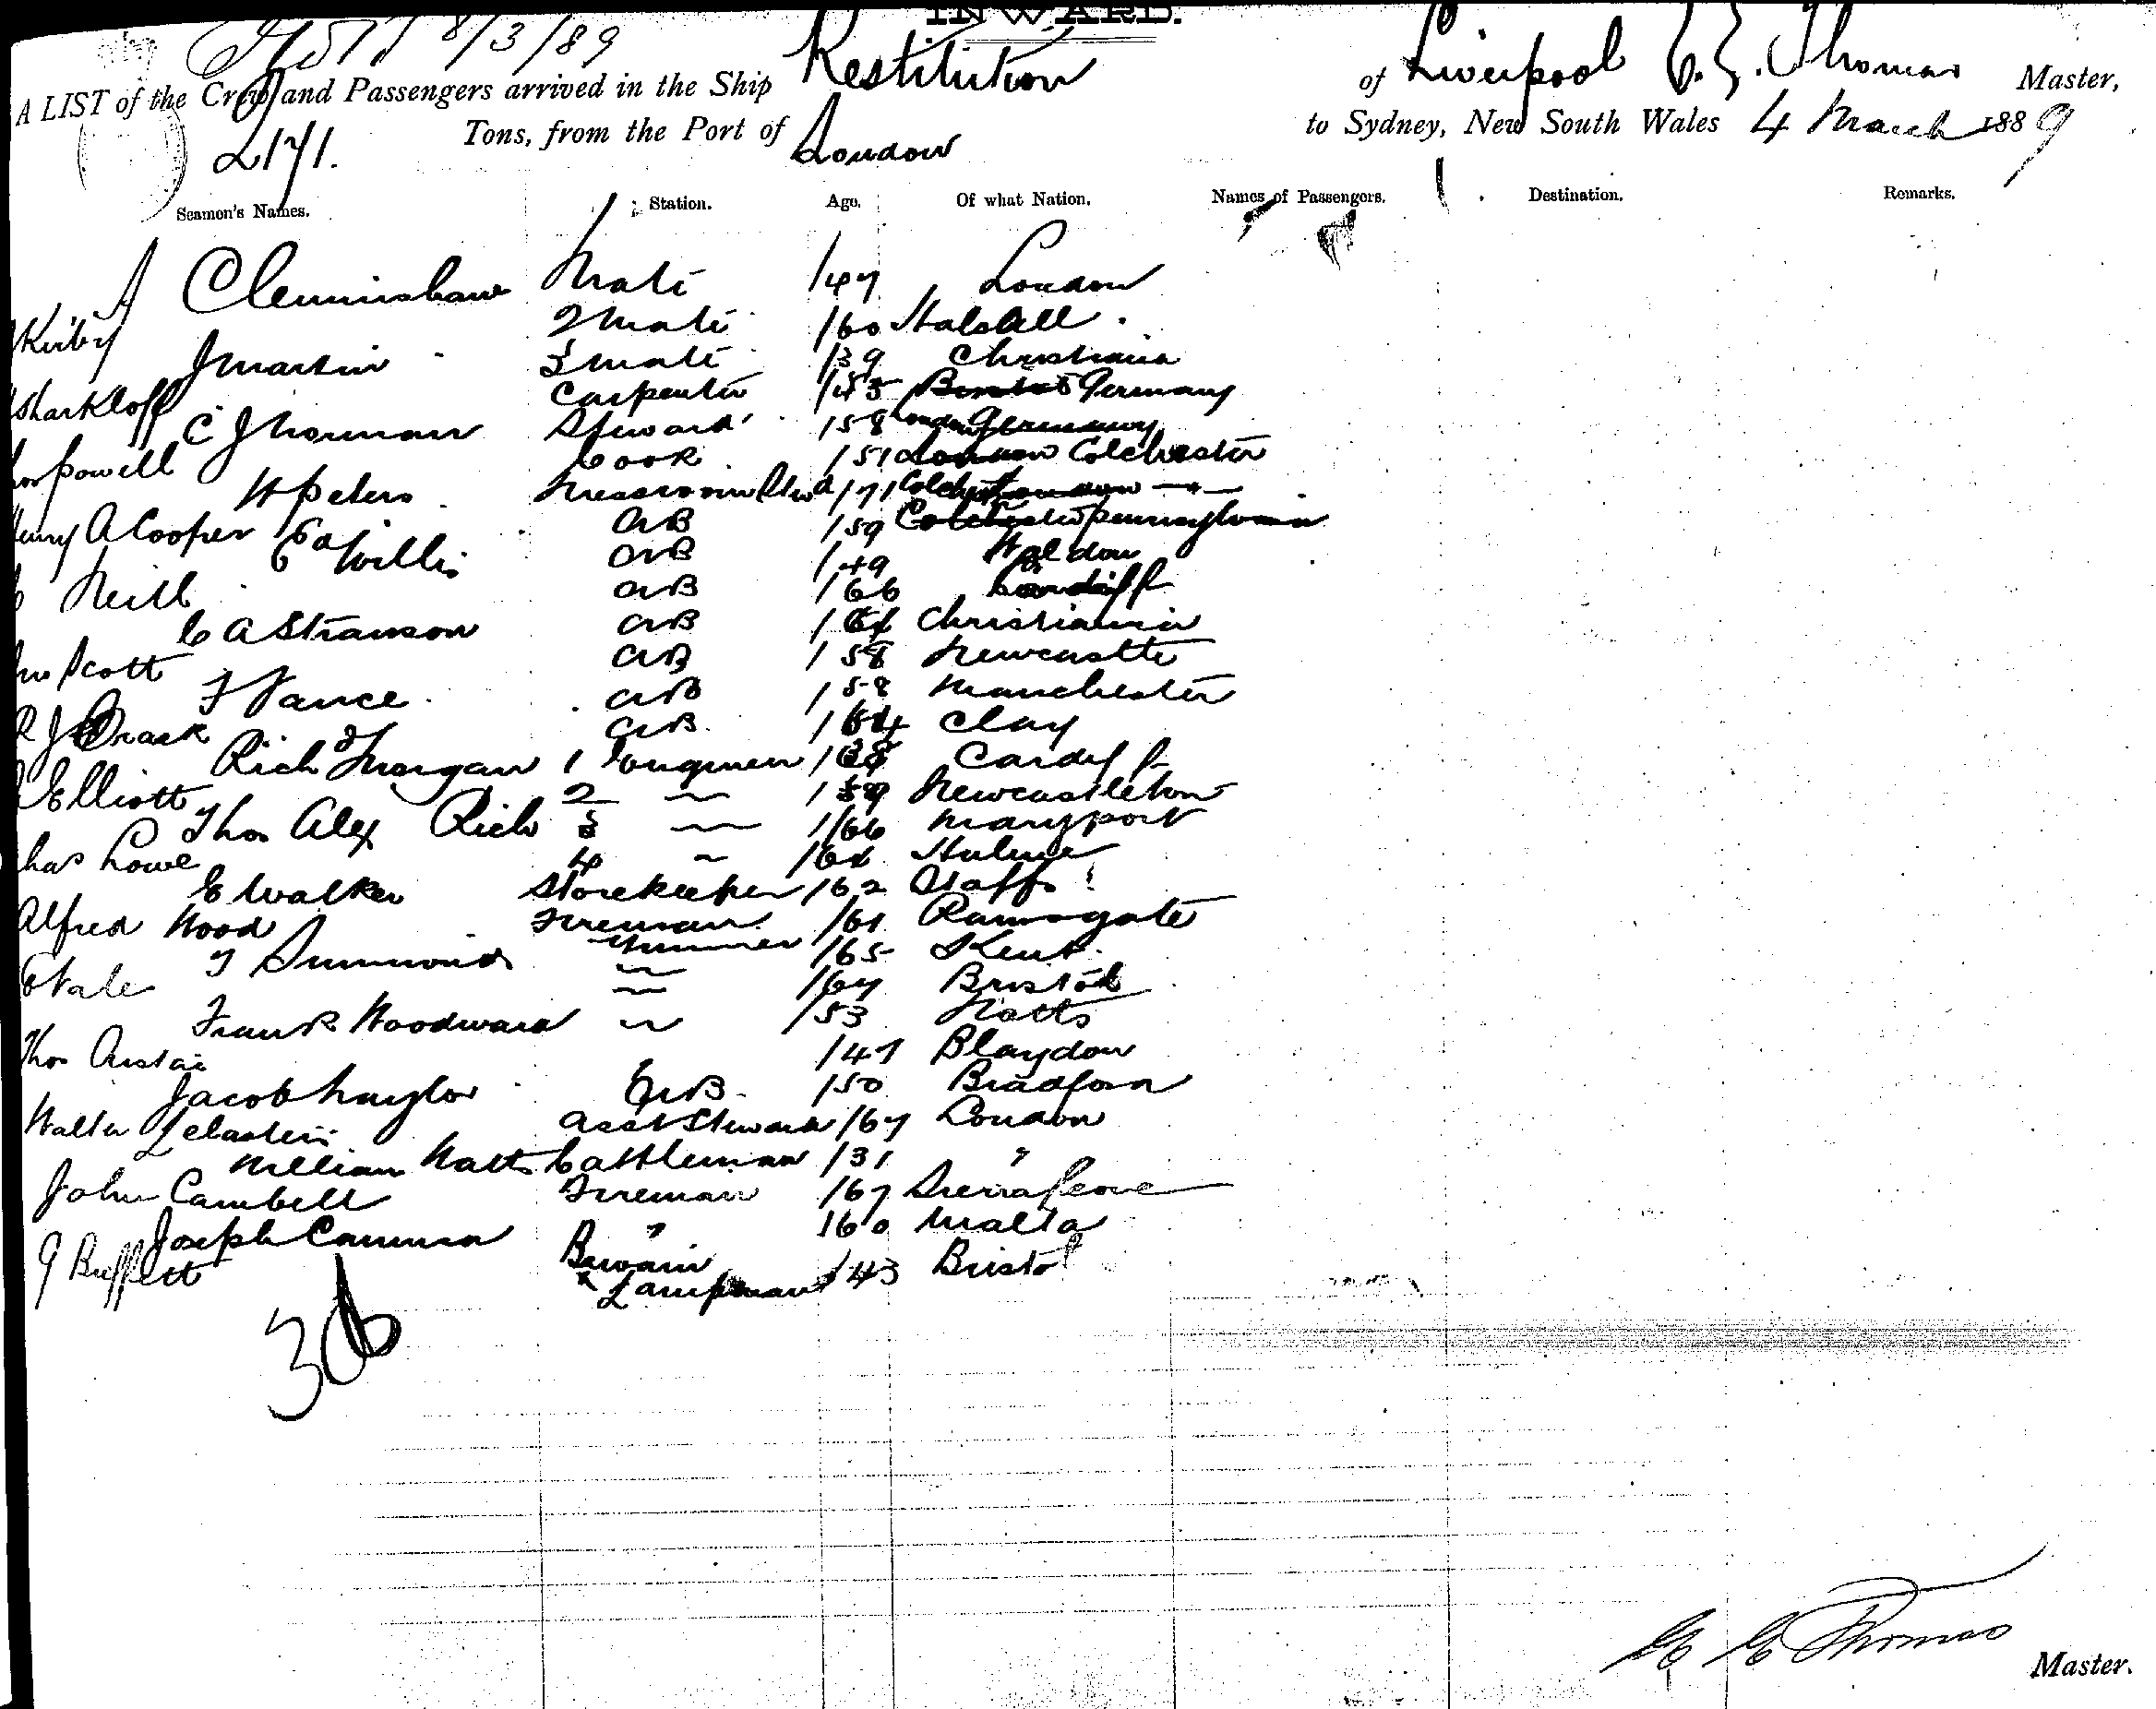 INWARD.
8/3/89
A LIST of the Crew and Passengers arrived in the Ship Restitution of Liverpool Thomas Master,
2171. Tons, from the Port of London to Sydney, New South Wales 4 March 1889
Seamen's Names. Station. Age. Of what Nation. Names of Passengers. Destination. Remarks.
A Clemmishaw Mate /47 London
Kirby 2 Mate /60 Halshall
J Martin 3 Mate /39 Christiania
Sharkloff Carpenter /43 Germany
C J Norman Steward /58 London
Powell Cook /51 Colchester
H Peters Messroom Stwd /71
A Cooper AB /59 Pennsylvania
Willis AB /49
Neill AB /66 Cardiff
C A Stranson AB Christiania
Scott AB /58 Newcastle
F Vance AB /58 Manchester
R J Brack AB Clay
Rich Morgan 1 Cardiff
Elliott 2 〃 Newcastleton
Thos Alex Rich 3 〃 /66 Maryport
Lowe 4 〃 Hulme
E Walker Storekeeper /62 Staffs
Alfred Wood Fireman /61 Ramsgate
T Simmonds Trimmer /65 Kent
E Vale 〃 /67 Bristol
Frank Woodward 〃 /53 Notts
Thos /47 Blaydon
Jacob Naylor AB /50 Bradford
Walter Asst Steward /67 London
William Watts Cattleman /31 "
John Cambell Fireman /67 Sierra Leone
Joseph Camma " /60 Malta
G Buffett Bswain & Lampman /43 Bristol
30
Thomas
Master.